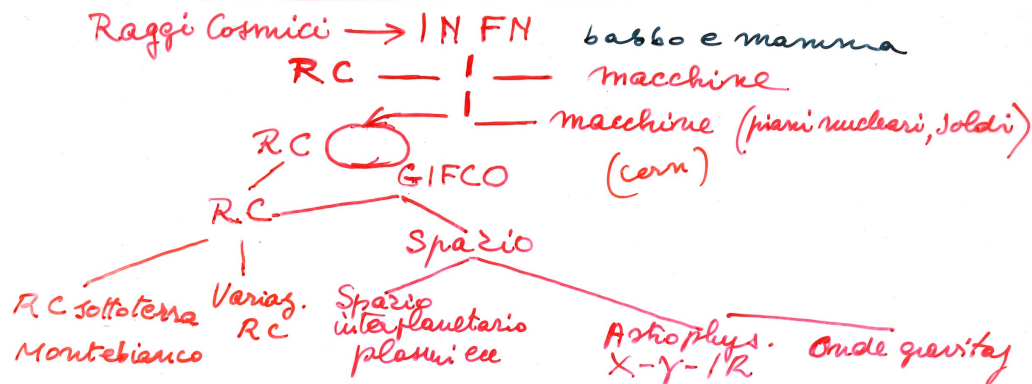 Raggi Cosmici → INFN babbo e mamma
RC macchine
macchine (piani nucleari, soldi)
RC (cern)
GIFCO
R.C.
Spazio
RC sottoterra
Montebianco
Variaz.
RC
Spazio
interplanetario
plasmi ecc
Astrophys.
X-γ-IR
Onde gravitaz